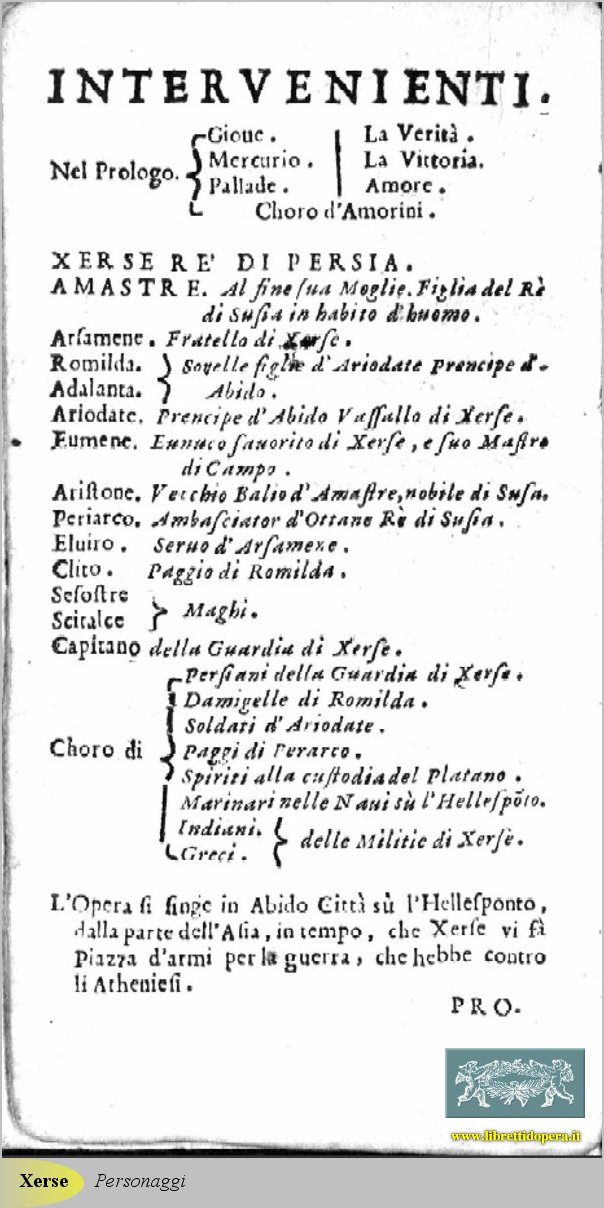 INTERVENIENTI.
Nel Prologo.
Gioue. La Verità.
Mercurio. La Vittoria.
Pallade. Amore.
Choro d'Amorini.
XERSE RE' DI PERSIA.
AMASTRE. Al fine ſua Moglie. Figlia del Rè
di Suſia in habito d'huomo.
Arſamene. Fratello di Xerſe.
Romilda. Sorelle figlie d'Ariodate Prencipe d'
Adalanta. Abido.
Ariodate. Prencipe d'Abido Vaſſallo di Xerſe.
Eumene. Eunuco fauorito di Xerſe, e ſuo Maſtro
di Campo.
Ariſtone. Vecchio Balio d'Amaſtre, nobile di Suſa.
Periarco. Ambaſciator d'Ottane Rè di Suſia.
Eluiro. Seruo d'Arſamene.
Clito. Paggio di Romilda.
Seſoſtre
Scitalce Maghi.
Capitano della Guardia di Xerſe.
Perſiani della Guardia di Xerſe.
Damigelle di Romilda.
Soldati d'Ariodate.
Choro di Paggi di Perarco.
Spiriti alla cuſtodia del Platano.
Marinari nelle Naui sù l'Helleſpõto.
Indiani. delle Militie di Xerſe.
Greci.
L'Opera ſi finge in Abido Città sù l'Helleſponto,
dalla parte dell'Aſia, in tempo, che Xerſe vi fà
Piazza d'armi per la guerra, che hebbe contro
li Athenieſi.
PRO.
www.librettidopera.it
Xerse Personaggi